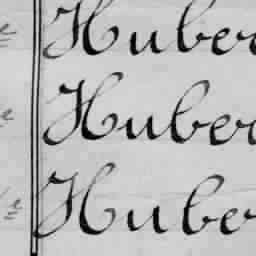 Huber
Huber
Hube